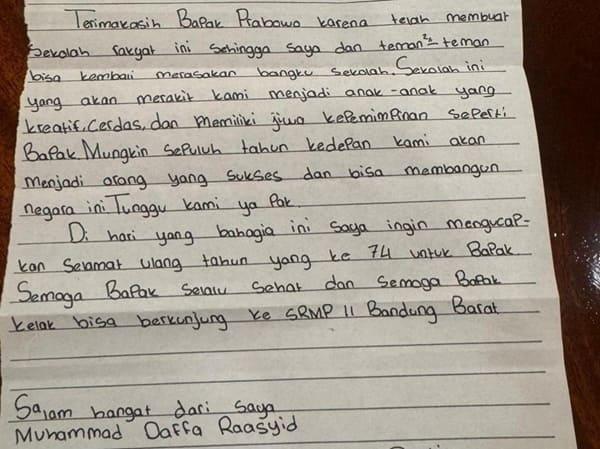 Terimakasih Bapak Prabowo karena telah membuat
sekolah rakyat ini sehingga saya dan teman²-teman
bisa kembali merasakan bangku sekolah. Sekolah ini
yang akan merakit kami menjadi anak-anak yang
kreatif, cerdas, dan memiliki jiwa kepemimpinan seperti
Bapak. Mungkin sepuluh tahun kedepan kami akan
menjadi orang yang sukses dan bisa membangun
negara ini Tunggu kami ya Pak.
Di hari yang bahagia ini saya ingin mengucap-
kan selamat ulang tahun yang ke 74 untuk Bapak
Semoga Bapak selalu sehat dan semoga Bapak
kelak bisa berkunjung ke SRMP 11 Bandung Barat
Salam hangat dari saya
Muhammad Daffa Raasyid